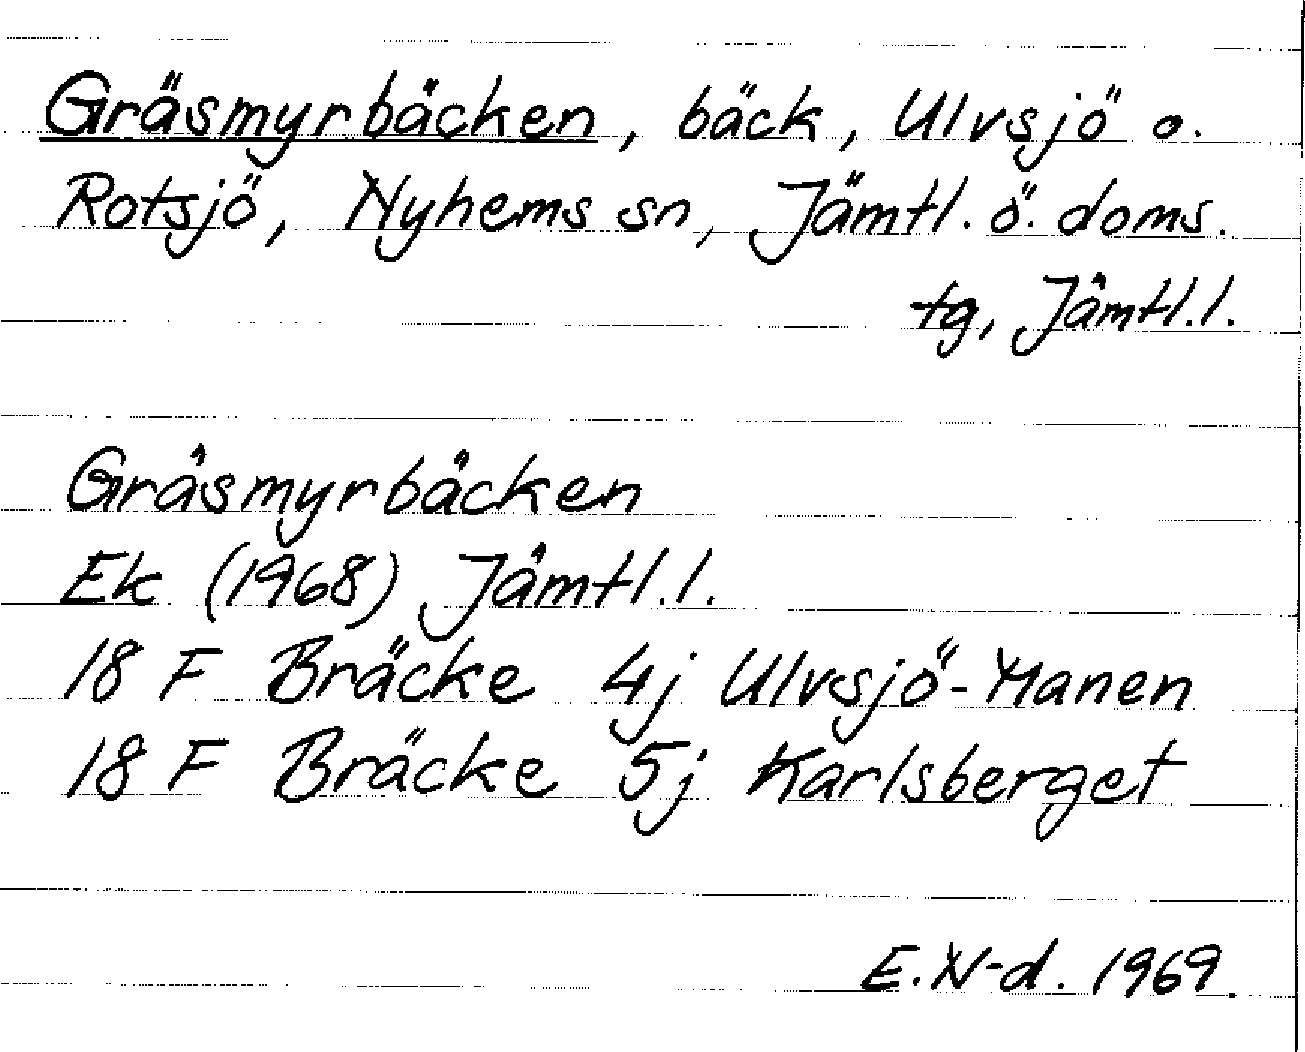 Gräsmyrbäcken, bäck, Ulvsjö o.
Rotsjö, Nyhems sn, Jämtl. ö. doms.
tg, Jämtl.l.
Gräsmyrbäcken
Ek (1968) Jämtl.l.
18 F Bräcke 4j Ulvsjö-Manen
18 F Bräcke 5j Karlsberget
E.N-d. 1969.